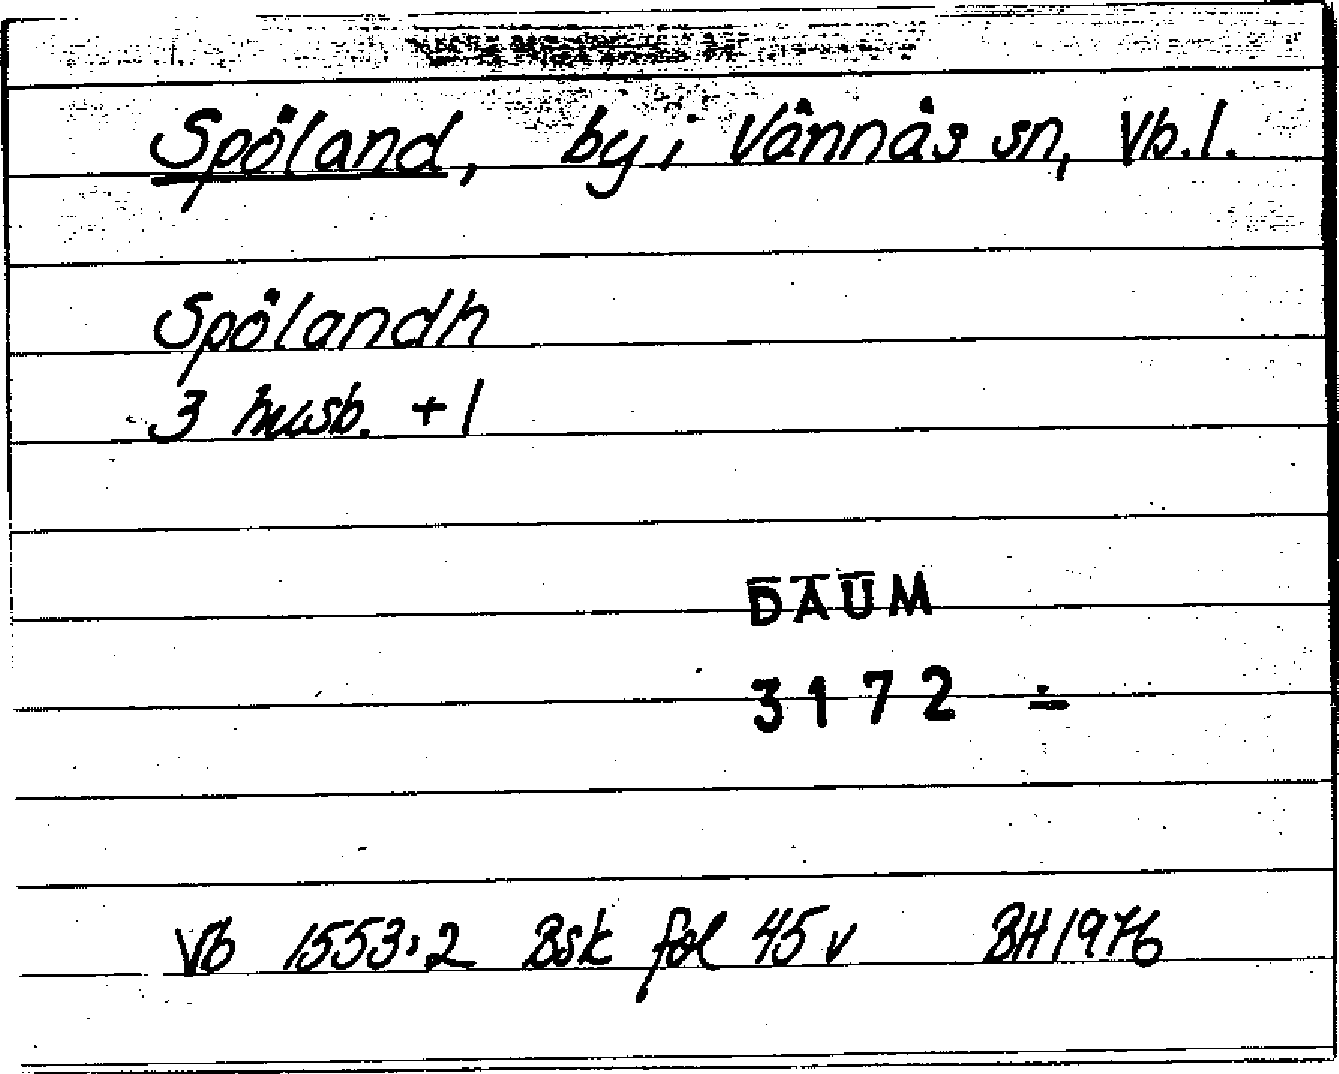 Spöland, by i Vännäs sn, Vb.l.
Spölandh
3 husb. + 1
DAUM
3172 ÷
Vb 1553:2 Bsk fol 45 v BH 1976